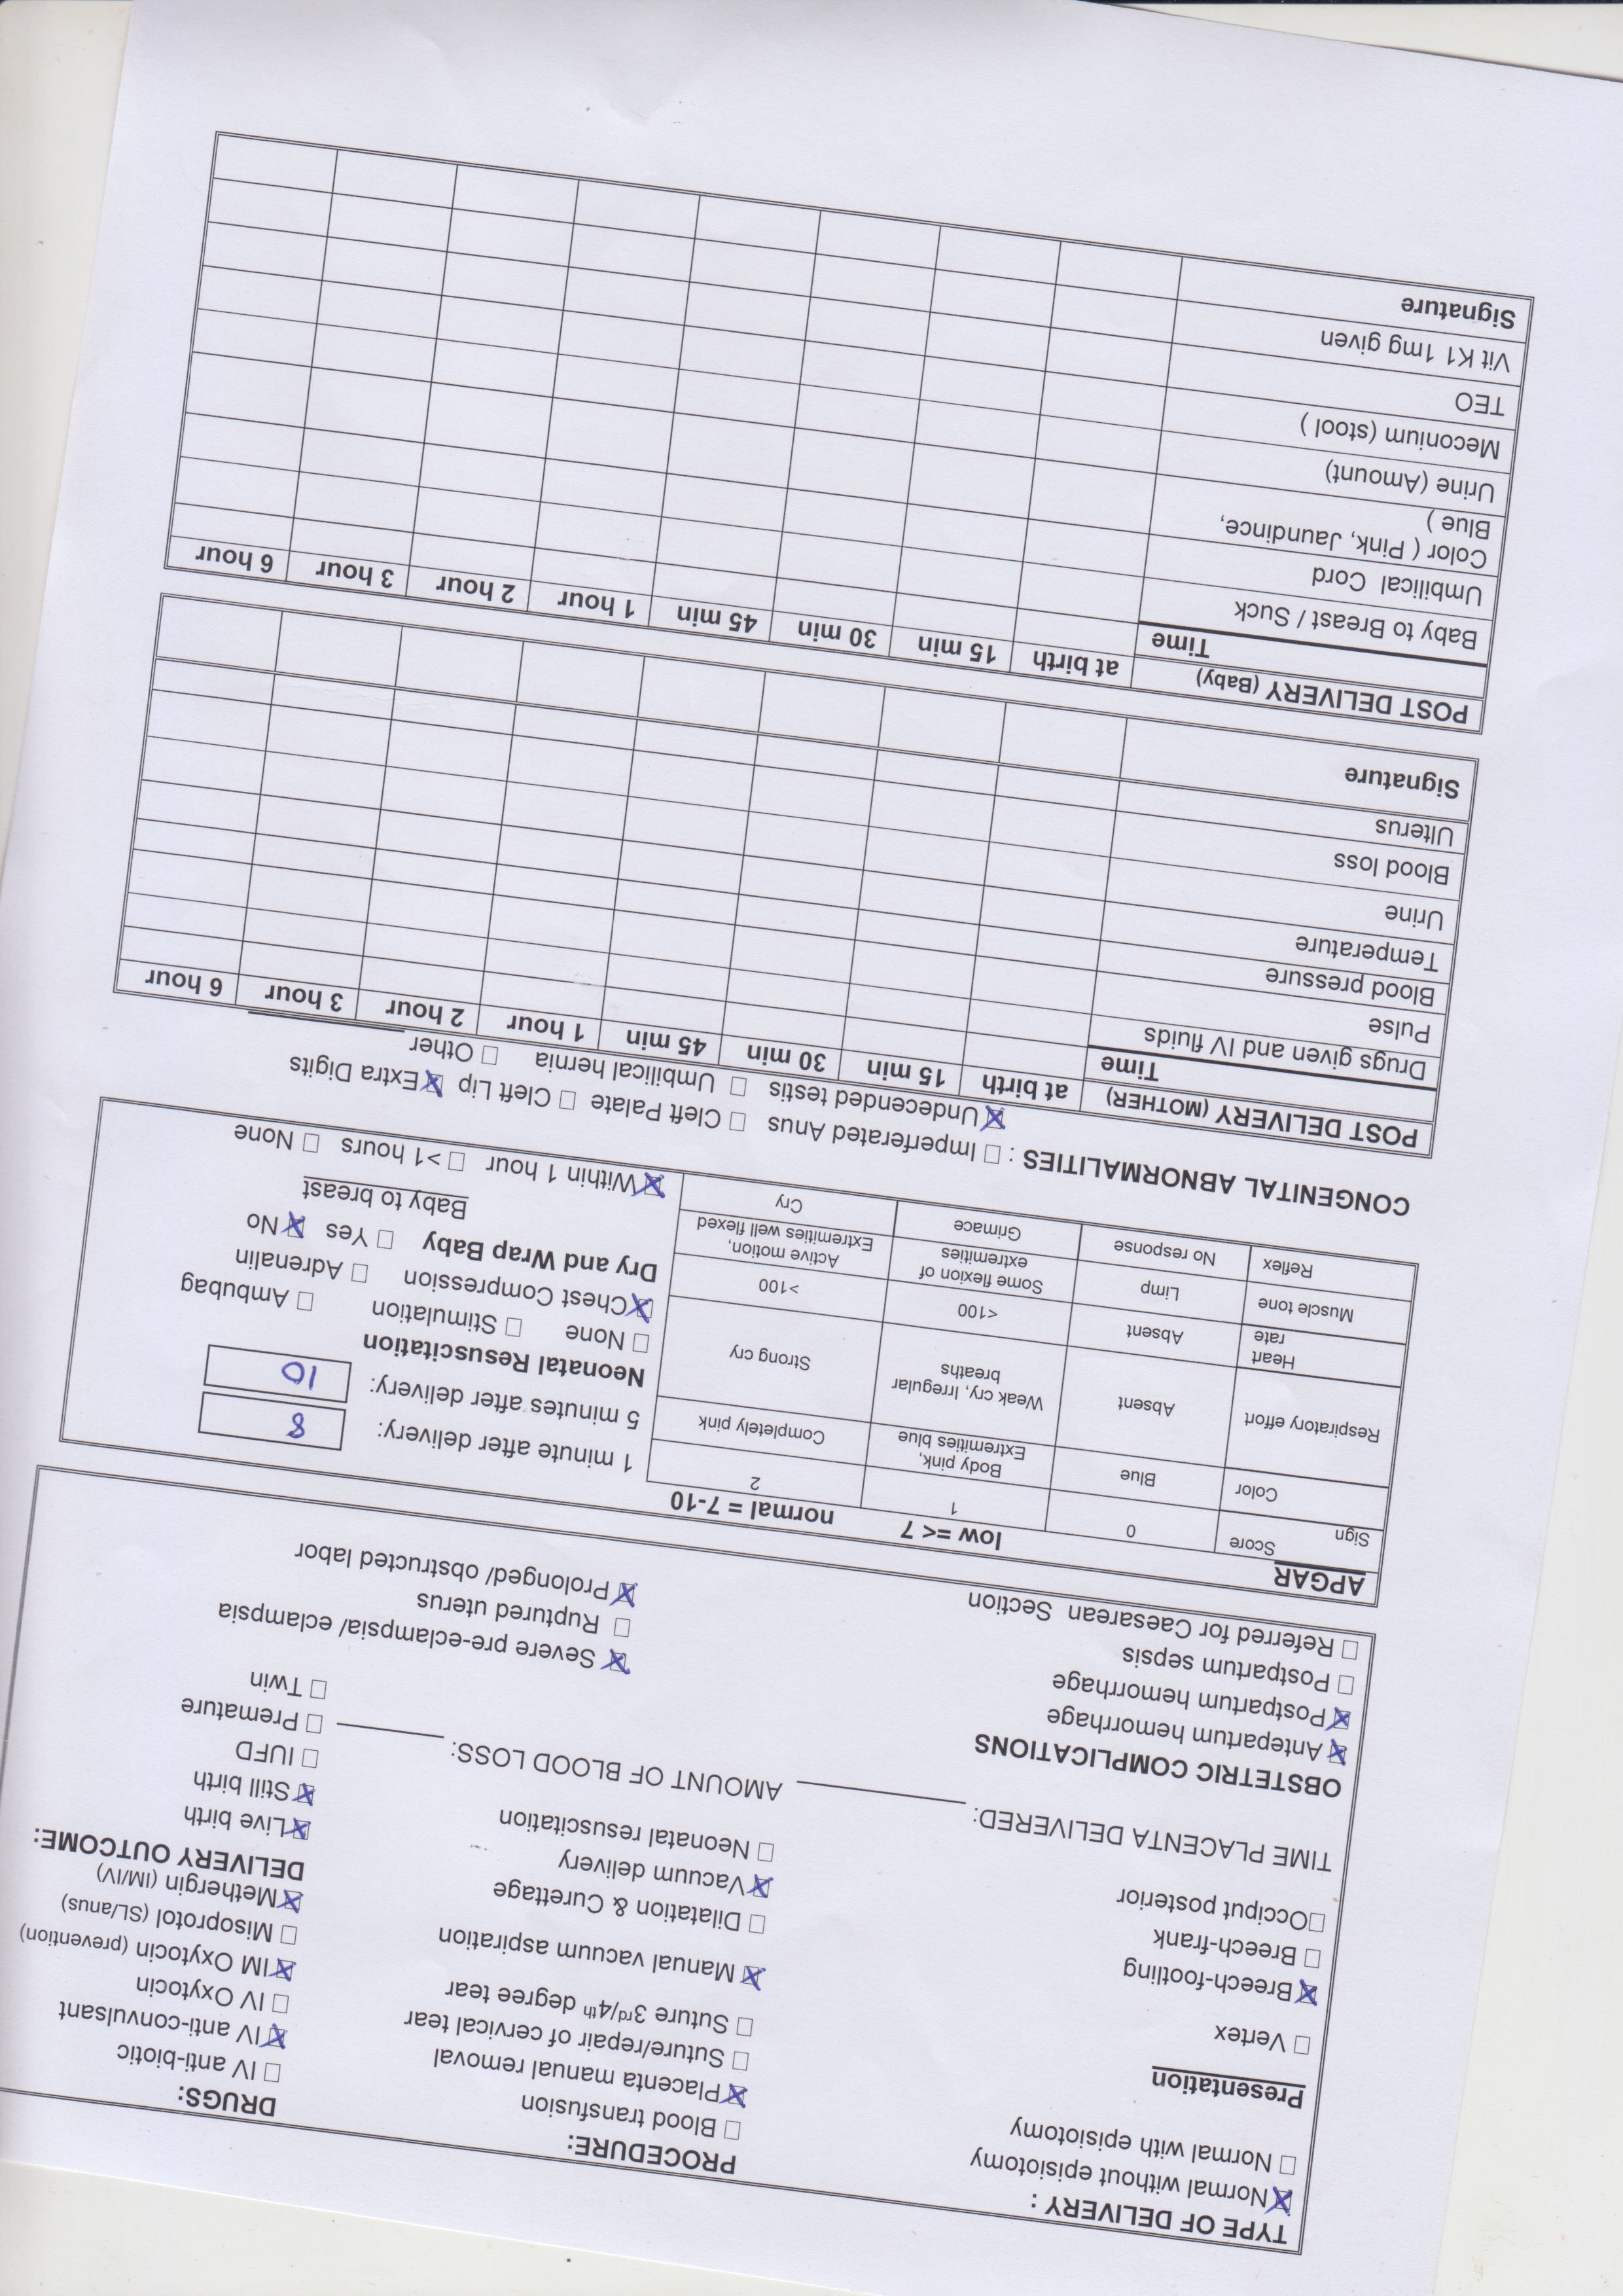 TYPE OF DELIVERY :
☒ Normal without episiotomy
☐ Normal with episiotomy
Presentation
☐ Vertex
☒ Breech-footling
☐ Breech-frank
☐ Occiput posterior
PROCEDURE:
☐ Blood transfusion
☒ Placenta manual removal
☐ Suture/repair of cervical tear
☐ Suture 3rd/4th degree tear
☒ Manual vacuum aspiration
☐ Dilatation & Curettage
☒ Vacuum delivery
☐ Neonatal resuscitation
DRUGS:
☐ IV anti-biotic
☒ IV anti-convulsant
☐ IV Oxytocin
☒ IM Oxytocin (prevention)
☐ Misoprotol (SL/anus)
☒ Methergin (IM/IV)
DELIVERY OUTCOME:
☒ Live birth
☒ Still birth
☐ IUFD
☐ Premature
☐ Twin
TIME PLACENTA DELIVERED: ________ AMOUNT OF BLOOD LOSS: ________
OBSTETRIC COMPLICATIONS
☒ Antepartum hemorrhage
☒ Postpartum hemorrhage
☐ Postpartum sepsis
☐ Referred for Caesarean Section
☒ Severe pre-eclampsia/ eclampsia
☐ Ruptured uterus
☒ Prolonged/ obstructed labor
APGAR low =< 7 normal = 7-10
Sign Score 0 1 2
Color Blue Body pink, Extremities blue Completely pink
Respiratory effort Absent Weak cry, Irregular breaths Strong cry
Heart rate Absent <100 >100
Muscle tone Limp Some flexion of extremities Active motion, Extremities well flexed
Reflex No response Grimace Cry
1 minute after delivery: 8
5 minutes after delivery: 10
Neonatal Resuscitation
☐ None ☐ Stimulation ☐ Ambubag
☒ Chest Compression ☐ Adrenalin
Dry and Wrap Baby ☐ Yes ☒ No
Baby to breast
☒ Within 1 hour ☐ >1 hours ☐ None
CONGENITAL ABNORMALITIES : ☐ Imperferated Anus ☐ Cleft Palate ☐ Cleft Lip ☒ Extra Digits
☒ Undecended testis ☐ Umbilical hernia ☐ Other ________
POST DELIVERY (MOTHER)
Time at birth 15 min 30 min 45 min 1 hour 2 hour 3 hour 6 hour
Drugs given and IV fluids
Pulse
Blood pressure
Temperature
Urine
Blood loss
Ulterus
Signature
POST DELIVERY (Baby)
Time at birth 15 min 30 min 45 min 1 hour 2 hour 3 hour 6 hour
Baby to Breast / Suck
Umbilical Cord
Color ( Pink, Jaundince,
Blue )
Urine (Amount)
Meconium (stool )
TEO
Vit K1 1mg given
Signature